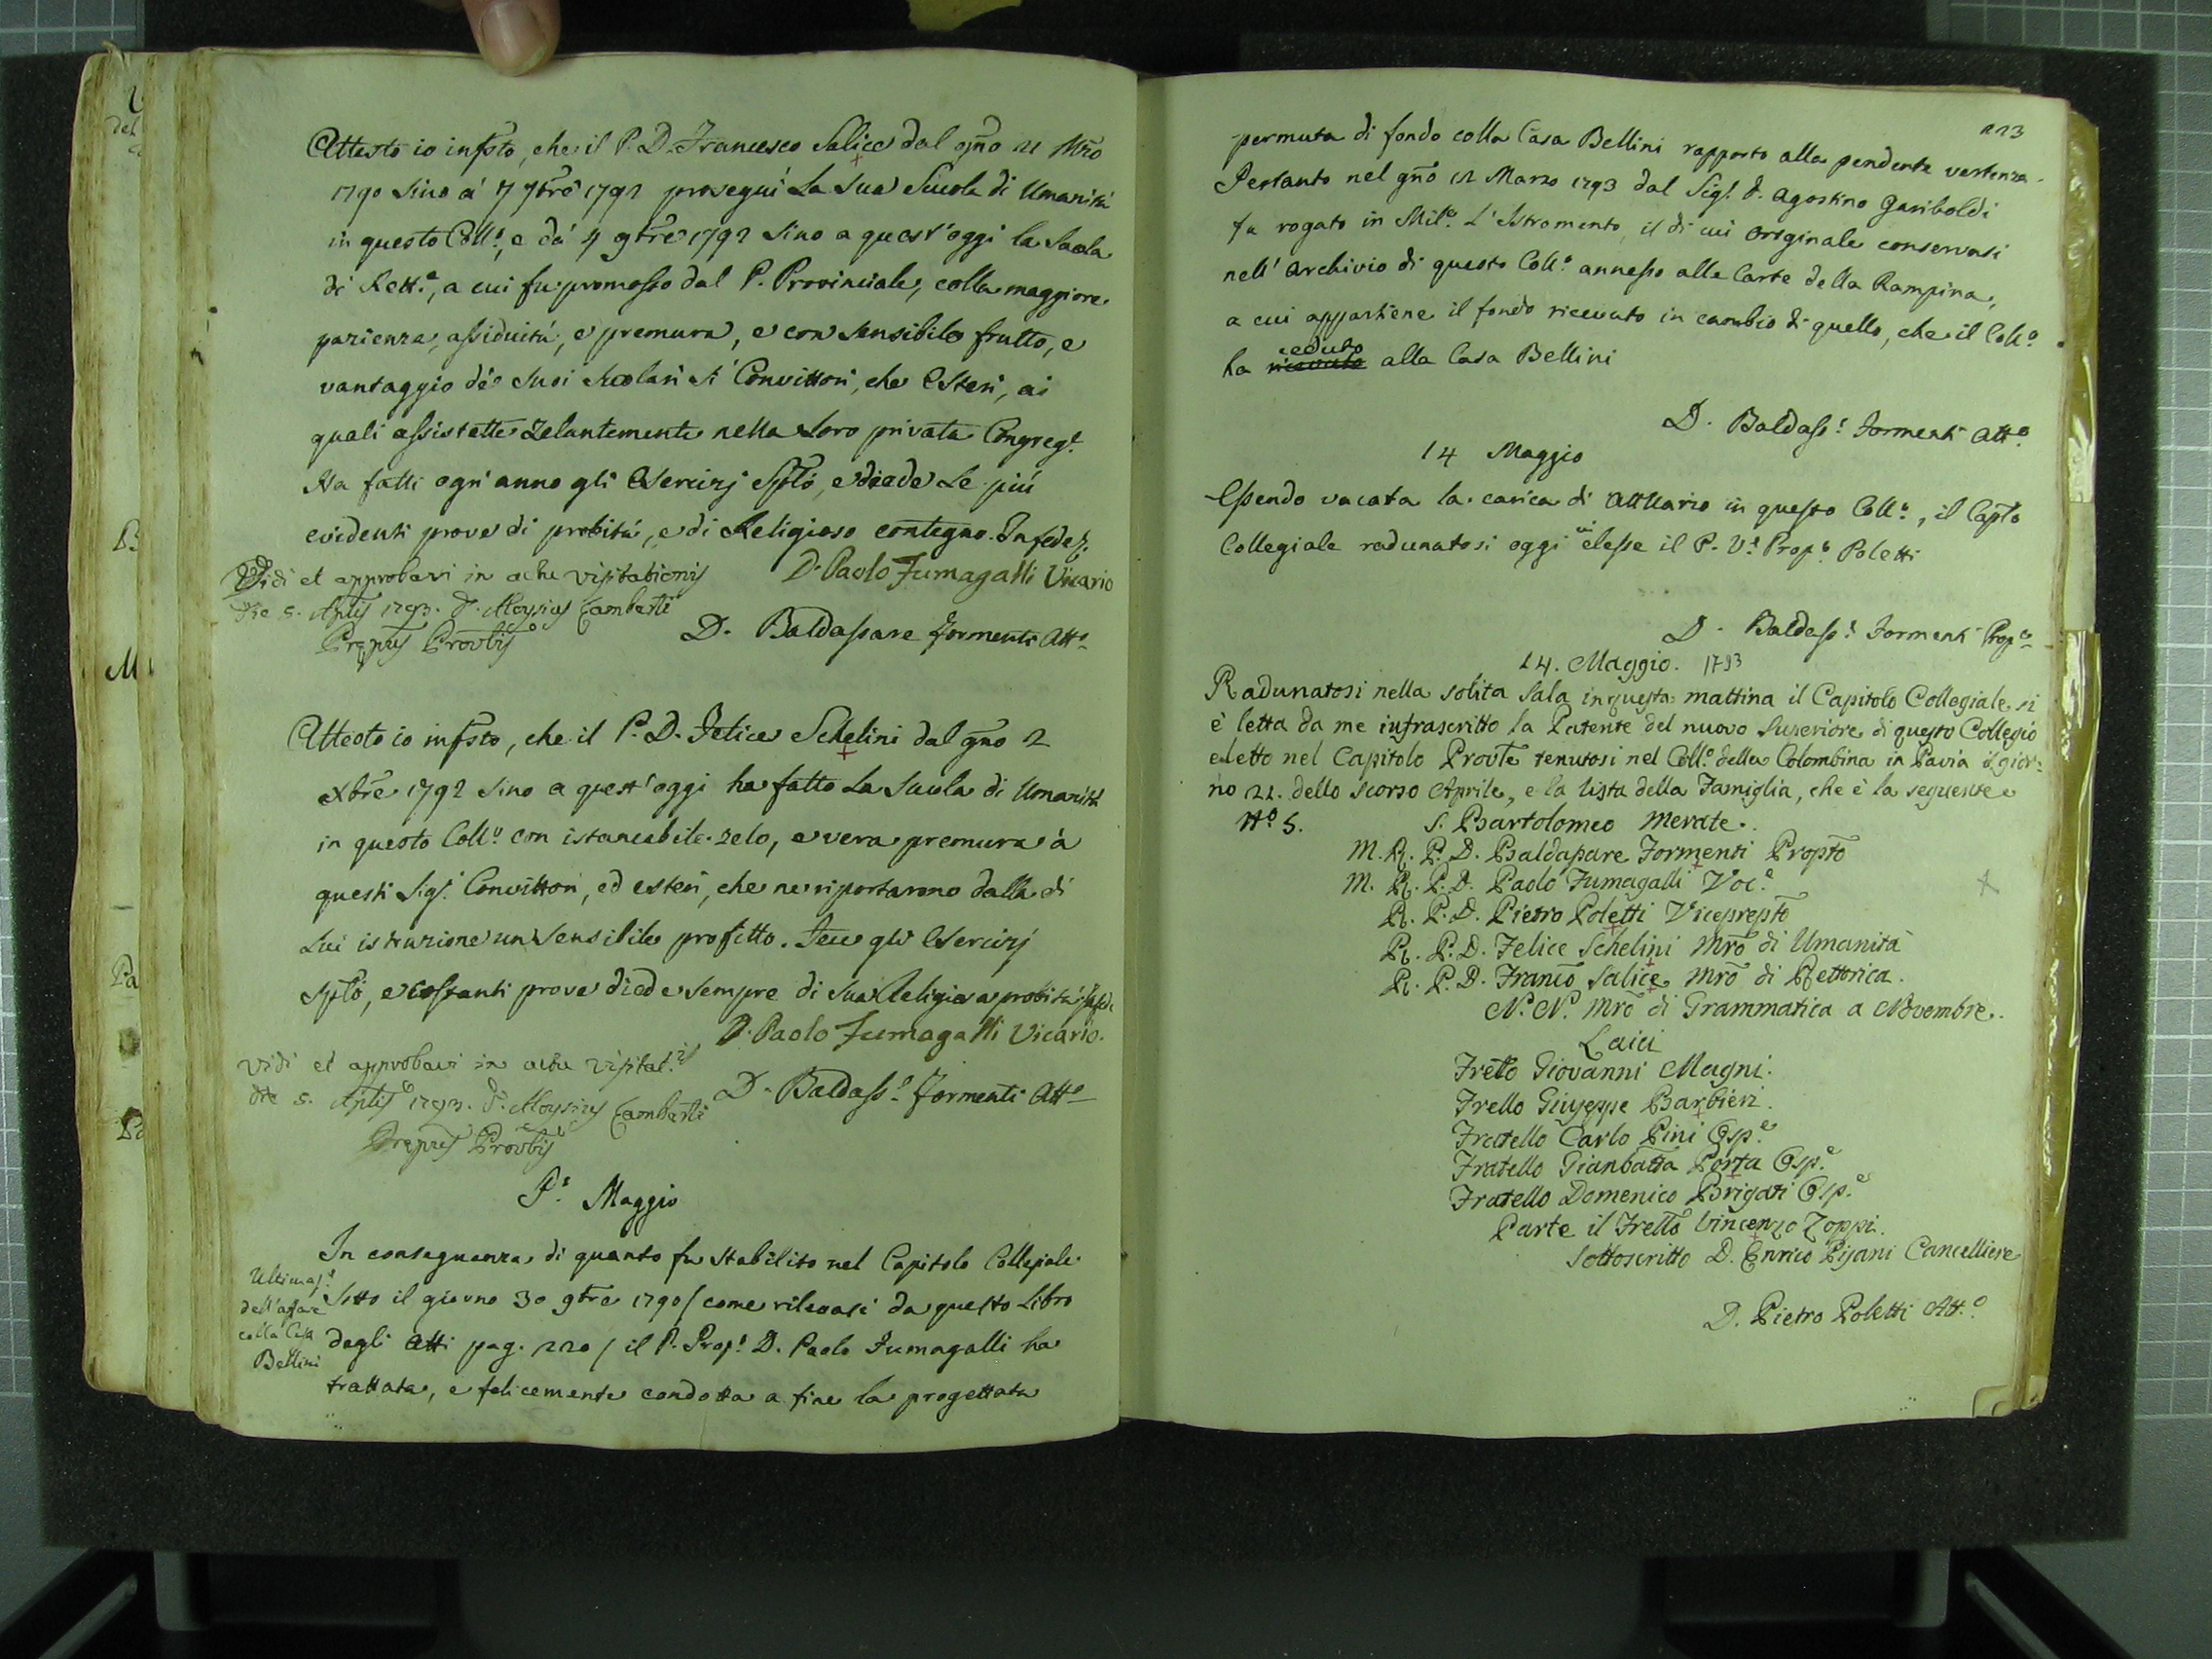 Attesto io infsto, che il P. D. Francesco Salice dal gno 21 Mrzo
1790 sino a' 7 7bre 1792 proseguì la sua Scuola di Umanità
in questo Coll.o, e da' 4 9bre 1792 sino a quest'oggi la Scuola
di Rett.a, a cui fu promosso dal P. Provinciale, colla maggiore
pazienza, assiduità, e premura, e con sensibile frutto, e
vantaggio de' suoi Scolari sì Convittori, che Esteri, ai
quali assistette zelantemente nella loro privata Congreg.e
Ha fatti ogni anno gli Esercizj Splî, e diede le più
evidenti prove di probità, e di Religioso contegno. In fede
D. Paolo Fumagalli Vicario
Vidi et approbavi in actu visitationis
die 5. Aplis 1793. D. Aloysius Lamberti
Prepus Provlis
D. Baldassare Formenti Att.o
Attesto io infsto, che il P. D. Felice Schelini dal gno 2
Xbre 1792 sino a quest'oggi ha fatto la Scuola di Umanità
in questo Coll.o con istancabile zelo, e vera premura a
questi Sig.i Convittori, ed esteri, che ne riportarono dalla di
lui istruzione un sensibile profitto. Fece gli Esercizj
Splî, e costanti prove diede sempre di sua Religiosa probità. In fede
D. Paolo Fumagalli Vicario.
Vidi et approbavi in actu visitat.is
die 5. Aplis 1793. D. Aloysius Lamberti
Prepus Provlis
D. Baldass.e Formenti Att.o
P.o Maggio
In conseguenza di quanto fu stabilito nel Capitolo Collegiale
Ultimaz.e
dell'affare
colla Casa
Bellini
sotto il giorno 30 9bre 1790 / come rilevasi da questo Libro
degli Atti pag. 220 / il P. Prop.o D. Paolo Fumagalli ha
trattata, e felicemente condotta a fine la progettata
223
permuta di fondo colla Casa Bellini rapporto alla pendente vertenza.
Pertanto nel gno 12 Marzo 1793 dal Sig.r D. Agostino Gariboldi
fu rogato in Mil.o L'Istromento, il di cui originale conservasi
nell'Archivio di questo Coll.o annesso alle Carte della Rampina,
a cui appartiene il fondo ricevuto in cambio di quello, che il Coll.o
ha ricevuto ceduto alla Casa Bellini
D. Baldass.e Formenti Att.o
14 Maggio
Essendo vacata la carica di Attuario in questo Coll.o, il Caplo
Collegiale radunatosi oggi vi elesse il P. V.e Prop.o Poletti
D. Baldass.e Formenti Prop.o
14. Maggio. 1793
Radunatosi nella solita Sala in questa mattina il Capitolo Collegiale si
è letta da me infrascritto la Patente del nuovo Superiore di questo Collegio
eletto nel Capitolo Provle tenutosi nel Coll.o della Colombina in Pavia il gior=
no 22. dello scorso Aprile, e la lista della Famiglia, che è la seguente
N.o 5. S. Bartolomeo Merate.
M. R. P. D. Baldassare Formenti Propto
M. R. P. D. Paolo Fumagalli Voc.e
R. P. D. Pietro Poletti Viceprepto
R. P. D. Felice Schelini Mro di Umanità
R. P. D. Franco Salice Mro di Rettorica.
N. N. Mro di Grammatica a Novembre.
Laici
Frello Giovanni Magni.
Frello Giuseppe Barbieri.
Fratello Carlo Pini Osp.e
Fratello Gianbatta Porta Osp.e
Fratello Domenico Brigati Osp.e
Parte il Frello Vincenzo Zoppi.
Sottoscritto D. Enrico Pisani Cancelliere
D. Pietro Poletti Att.o